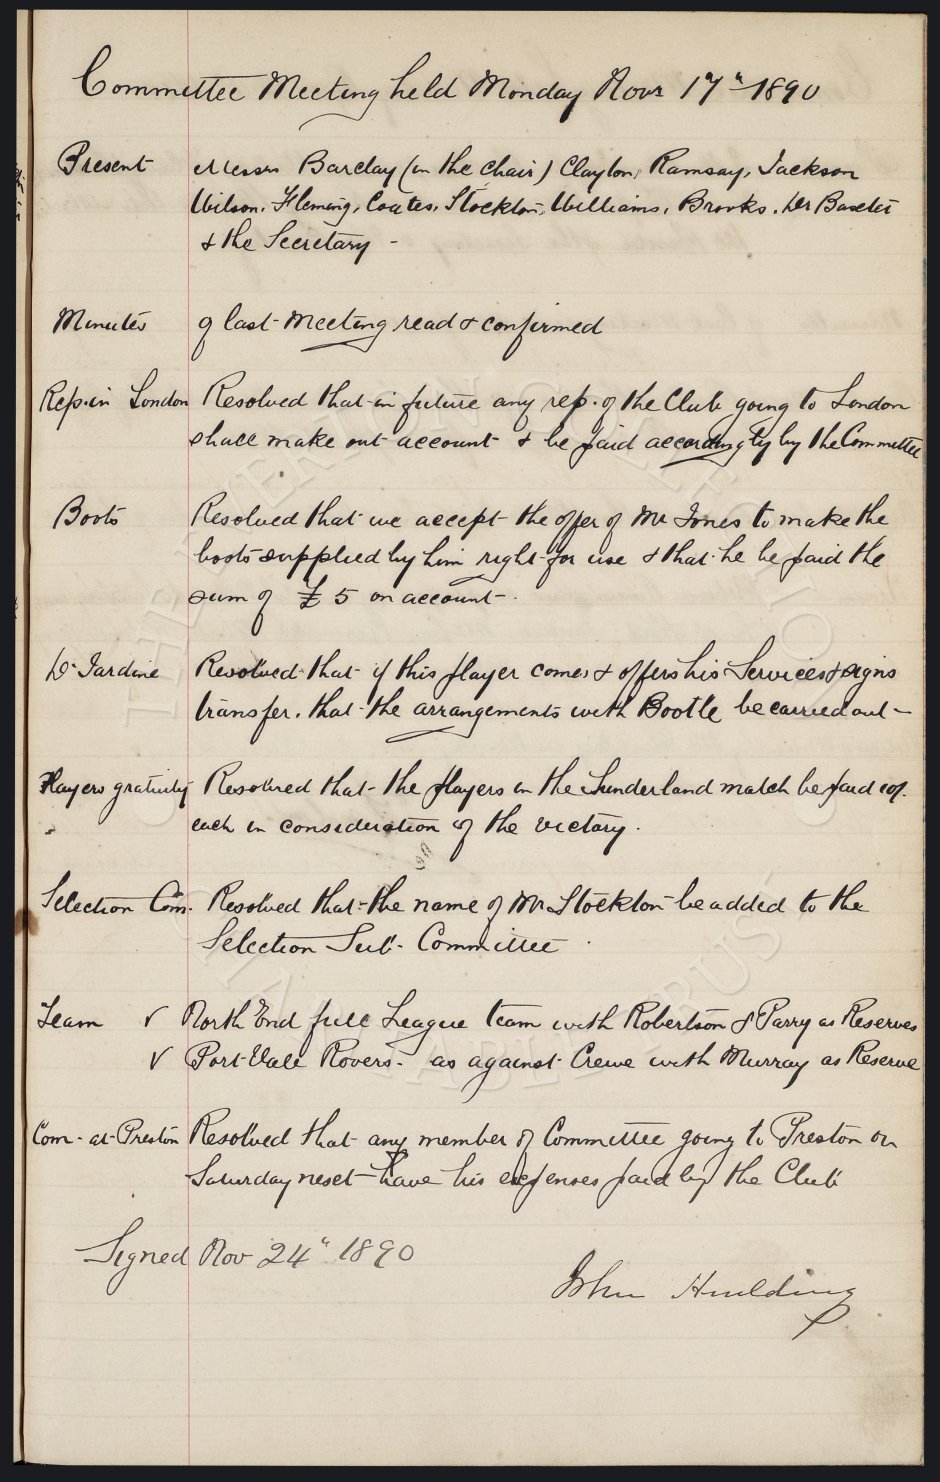 Committee Meeting held Monday Novr 17th 1890
Present Messrs Barclay (in the chair) Clayton, Ramsay, Jackson
Wilson, Fleming, Coates, Stockton, Williams, Brooks, Dr Baxter
& the Secretary -
Minutes of last Meeting read & confirmed
Rep. in London Resolved that in future any rep. of the Club going to London
shall make out account & be paid accordingly by the Committee
Boots Resolved that we accept the offer of Mr Jones to make the
boots supplied by him right for use & that he be paid the
sum of £5 on account -
D. Jardine Resolved that if this player comes & offers his Services & signs
transfer, that the arrangements with Bootle be carried out -
Players gratuity Resolved that the players in the Sunderland match be paid 10/-
each in consideration of the victory.
Selection Com. Resolved that the name of Mr Stockton be added to the
Selection Sub- Committee
Team v North End full League team with Robertson & Parry as Reserves
v Port Vale Rovers - as against Crewe with Murray as Reserve
Com - at Preston Resolved that any member of Committee going to Preston on
Saturday next have his expenses paid by the Club
Signed Nov 24th 1890
John Houlding
THE EVERTON COLLECTION
CHARITABLE TRUST